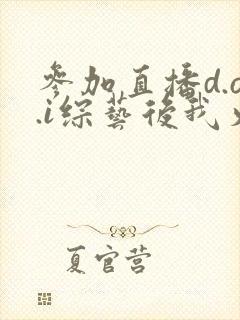 參加直播d.o
.i綜藝後我火
夏官营